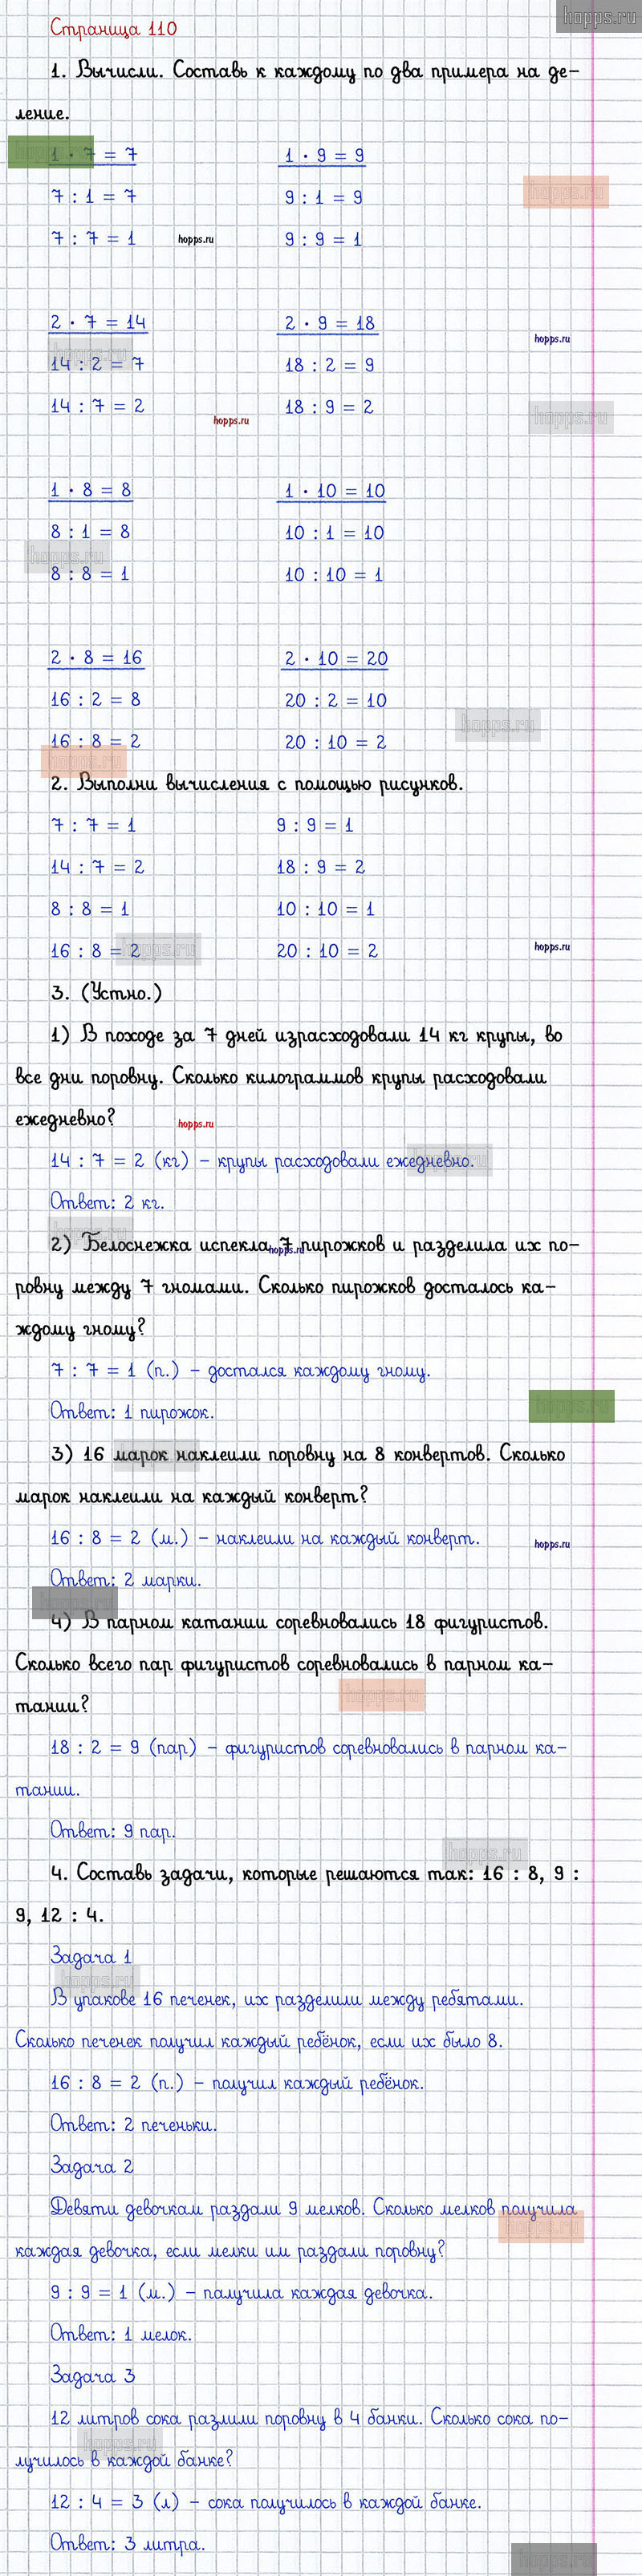 hopps.ru
Страница 110
1. Вычисли. Составь к каждому по два примера на де-
ление.
1 · 7 = 7
1 · 9 = 9
7 : 1 = 7
9 : 1 = 9
hopps.ru
7 : 7 = 1
hopps.ru
9 : 9 = 1
2 · 7 = 14
2 · 9 = 18
hopps.ru
14 : 2 = 7
18 : 2 = 9
14 : 7 = 2
18 : 9 = 2
hopps.ru
hopps.ru
1 · 8 = 8
1 · 10 = 10
8 : 1 = 8
10 : 1 = 10
hopps.ru
8 : 8 = 1
10 : 10 = 1
2 · 8 = 16
2 · 10 = 20
16 : 2 = 8
20 : 2 = 10
hopps.ru
16 : 8 = 2
20 : 10 = 2
hopps.ru
2. Выполни вычисления с помощью рисунков.
7 : 7 = 1
9 : 9 = 1
14 : 7 = 2
18 : 9 = 2
8 : 8 = 1
10 : 10 = 1
16 : 8 = 2
hopps.ru
20 : 10 = 2
hopps.ru
3. (Устно.)
1) В походе за 7 дней израсходовали 14 кг крупы, во
все дни поровну. Сколько килограммов крупы расходовали
ежедневно?
hopps.ru
14 : 7 = 2 (кг) – крупы расходовали ежедневно.
Ответ: 2 кг.
hopps.ru
2) Белоснежка испекла 7 пирожков и разделила их по-
hopps.ru
ровну между 7 гномами. Сколько пирожков досталось ка-
ждому гному?
7 : 7 = 1 (п.) – достался каждому гному.
Ответ: 1 пирожок.
hopps.ru
3) 16 марок наклеили поровну на 8 конвертов. Сколько
марок наклеили на каждый конверт?
16 : 8 = 2 (м.) – наклеили на каждый конверт.
hopps.ru
Ответ: 2 марки.
hopps.ru
4) В парном катании соревновались 18 фигуристов.
Сколько всего пар фигуристов соревновались в парном ка-
тании?
hopps.ru
18 : 2 = 9 (пар) – фигуристов соревновались в парном ка-
тании.
Ответ: 9 пар.
hopps.ru
4. Составь задачи, которые решаются так: 16 : 8, 9 :
9, 12 : 4.
Задача 1
hopps.ru
В упакове 16 печенек, их разделили между ребятами.
Сколько печенек получил каждый ребёнок, если их было 8.
16 : 8 = 2 (п.) – получил каждый ребёнок.
Ответ: 2 печеньки.
Задача 2
Девяти девочкам раздали 9 мелков. Сколько мелков получила
hopps.ru
каждая девочка, если мелки им раздали поровну?
9 : 9 = 1 (м.) – получила каждая девочка.
Ответ: 1 мелок.
Задача 3
12 литров сока разлили поровну в 4 банки. Сколько сока по-
hopps.ru
лучилось в каждой банке?
12 : 4 = 3 (л) – сока получилось в каждой банке.
Ответ: 3 литра.
hopps.ru